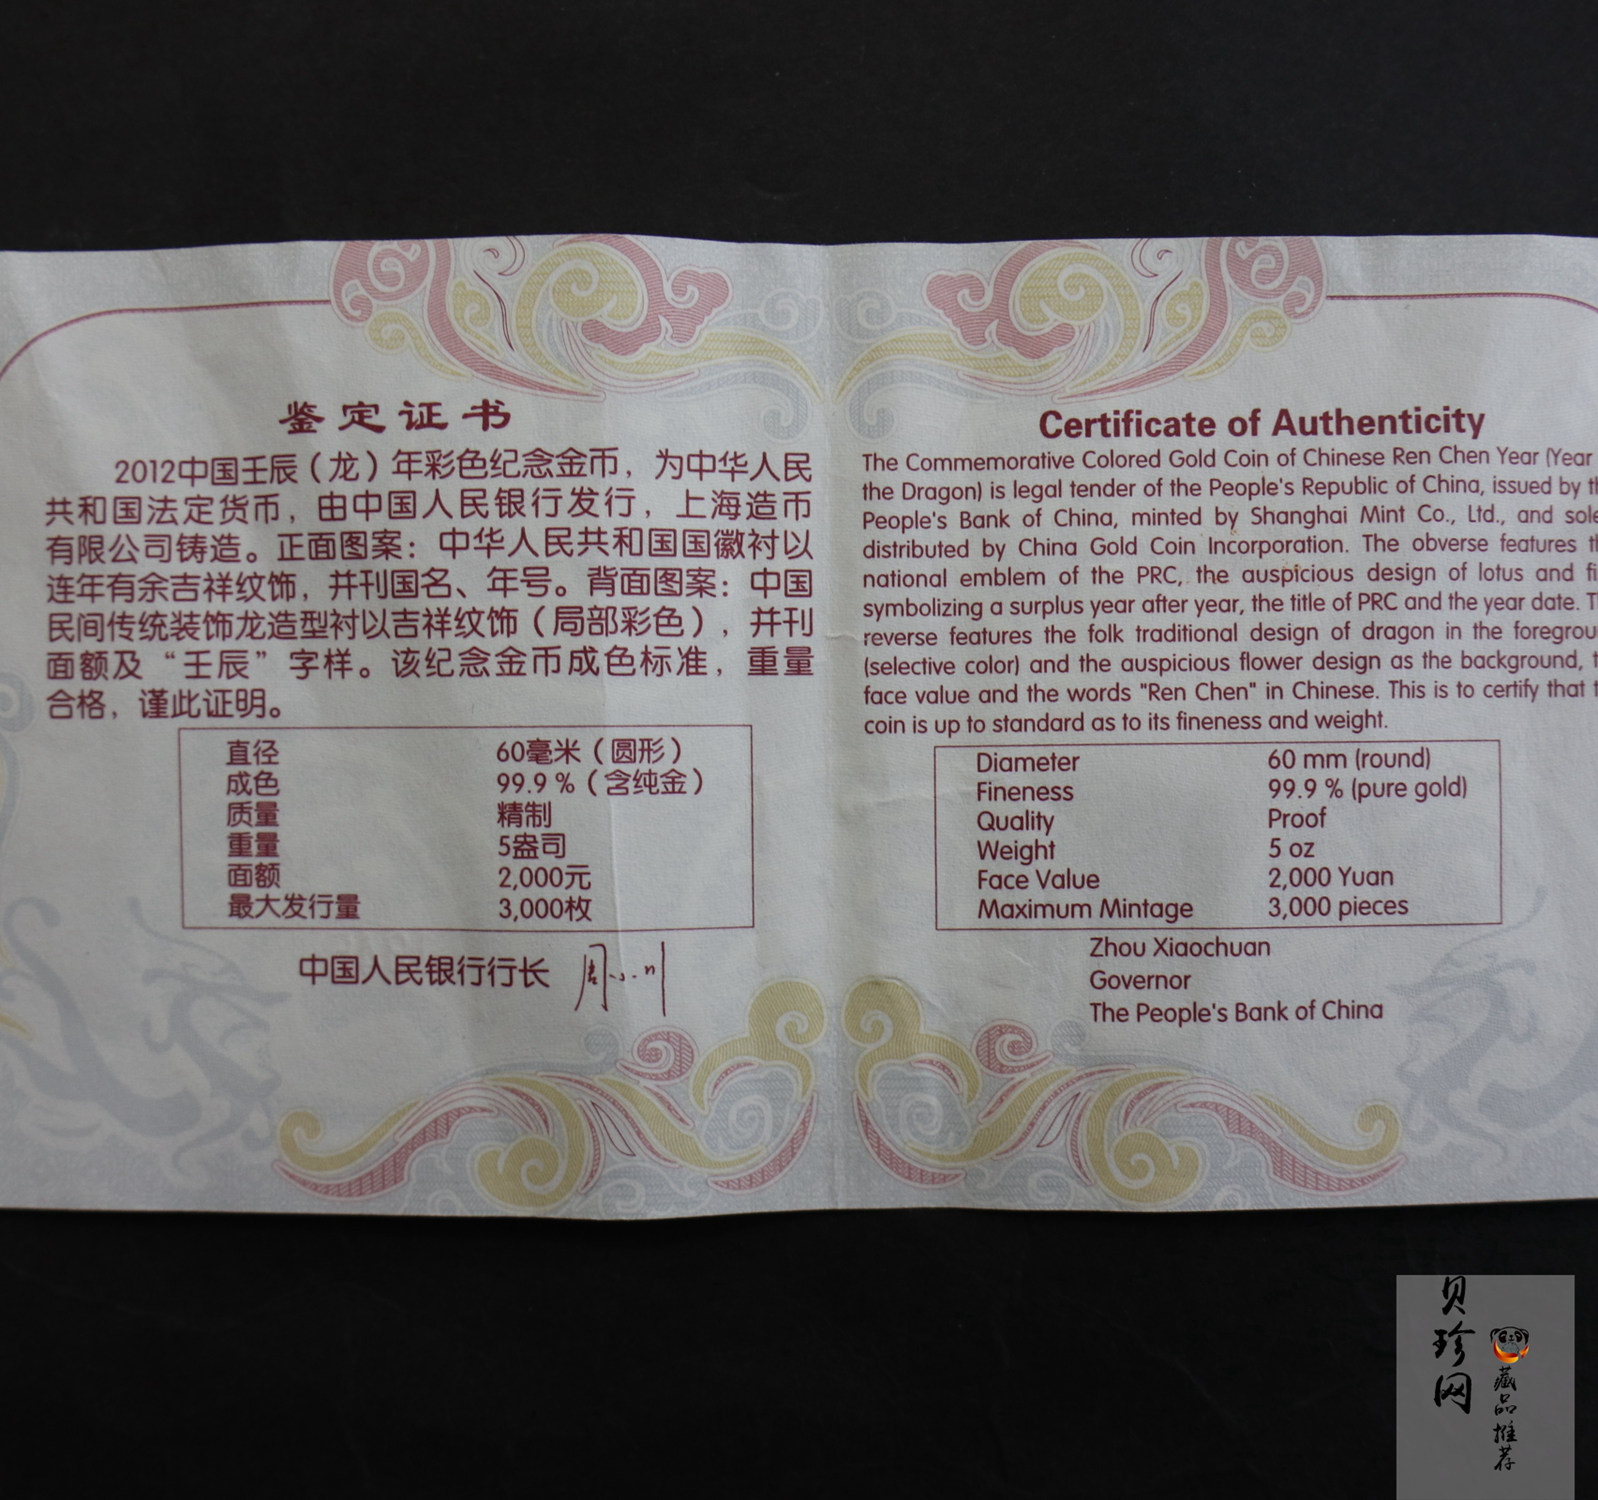 鉴定证书
2012中国壬辰（龙）年彩色纪念金币，为中华人民
共和国法定货币，由中国人民银行发行，上海造币
有限公司铸造。正面图案：中华人民共和国国徽衬以
连年有余吉祥纹饰，并刊国名、年号。背面图案：中国
民间传统装饰龙造型衬以吉祥纹饰（局部彩色），并刊
面额及“壬辰”字样。该纪念金币成色标准，重量
合格，谨此证明。
直径 60毫米（圆形）
成色 99.9 %（含纯金）
质量 精制
重量 5盎司
面额 2,000元
最大发行量 3,000枚
中国人民银行行长 周小川
Certificate of Authenticity
The Commemorative Colored Gold Coin of Chinese Ren Chen Year (Year
the Dragon) is legal tender of the People's Republic of China, issued by
People's Bank of China, minted by Shanghai Mint Co., Ltd., and
distributed by China Gold Coin Incorporation. The obverse features
national emblem of the PRC, the auspicious design of lotus and
symbolizing a surplus year after year, the title of PRC and the year date.
reverse features the folk traditional design of dragon in the
(selective color) and the auspicious flower design as the background,
face value and the words "Ren Chen" in Chinese. This is to certify that
coin is up to standard as to its fineness and weight.
Diameter 60 mm (round)
Fineness 99.9 % (pure gold)
Quality Proof
Weight 5 oz
Face Value 2,000 Yuan
Maximum Mintage 3,000 pieces
Zhou Xiaochuan
Governor
The People's Bank of China
贝珍网
藏品推荐